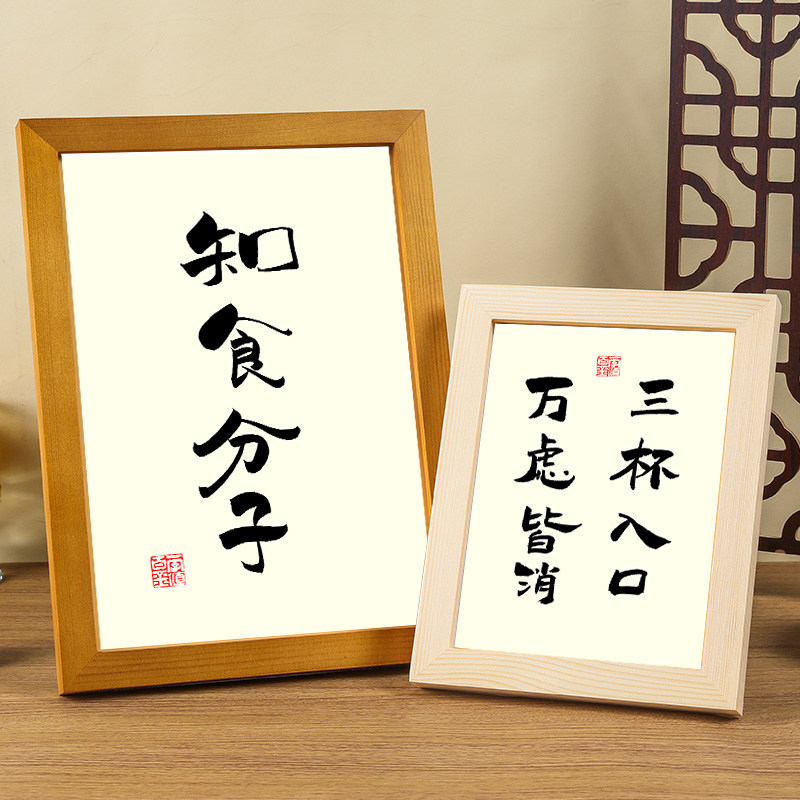 知食分子
三杯入口
万虑皆消